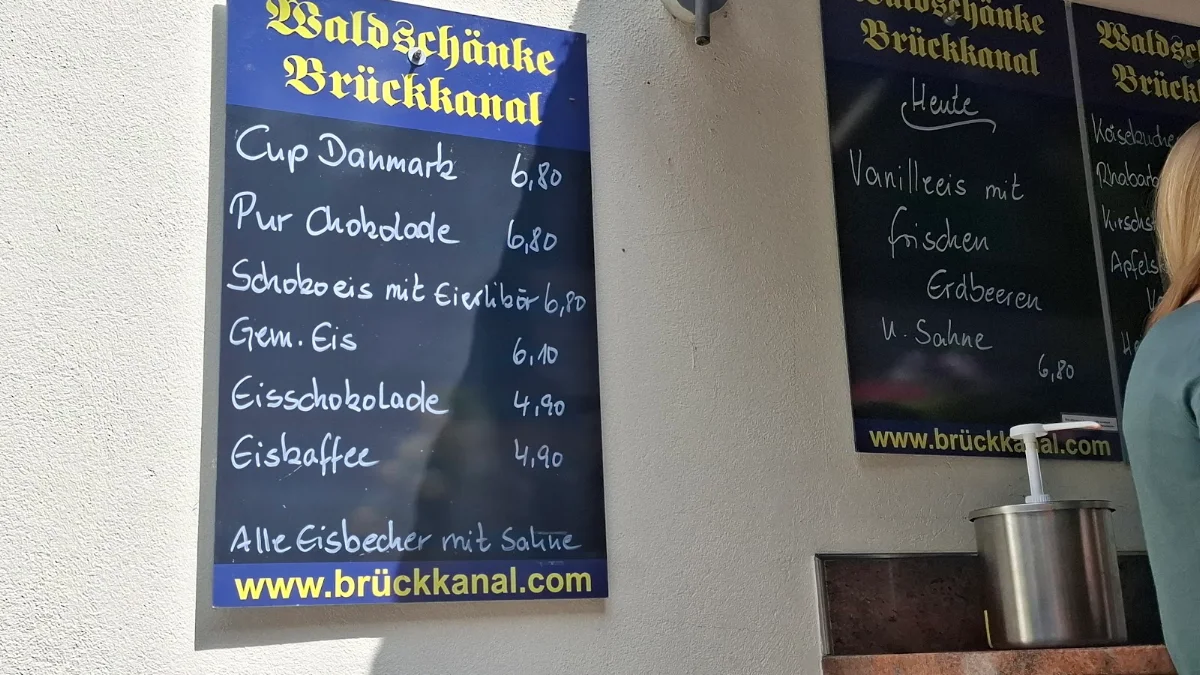 Waldschänke
Brückkanal
Cup Danmark 6,80
Pur Chokolade 6,80
Schokoeis mit Eierlikör 6,80
Gem. Eis 6,10
Eisschokolade 4,90
Eiskaffee 4,90
Alle Eisbecher mit Sahne
www.brückkanal.com
Waldschänke
Brückkanal
Heute
Vanilleeis mit
frischen
Erdbeeren
u. Sahne
6,80
www.brückkanal.com